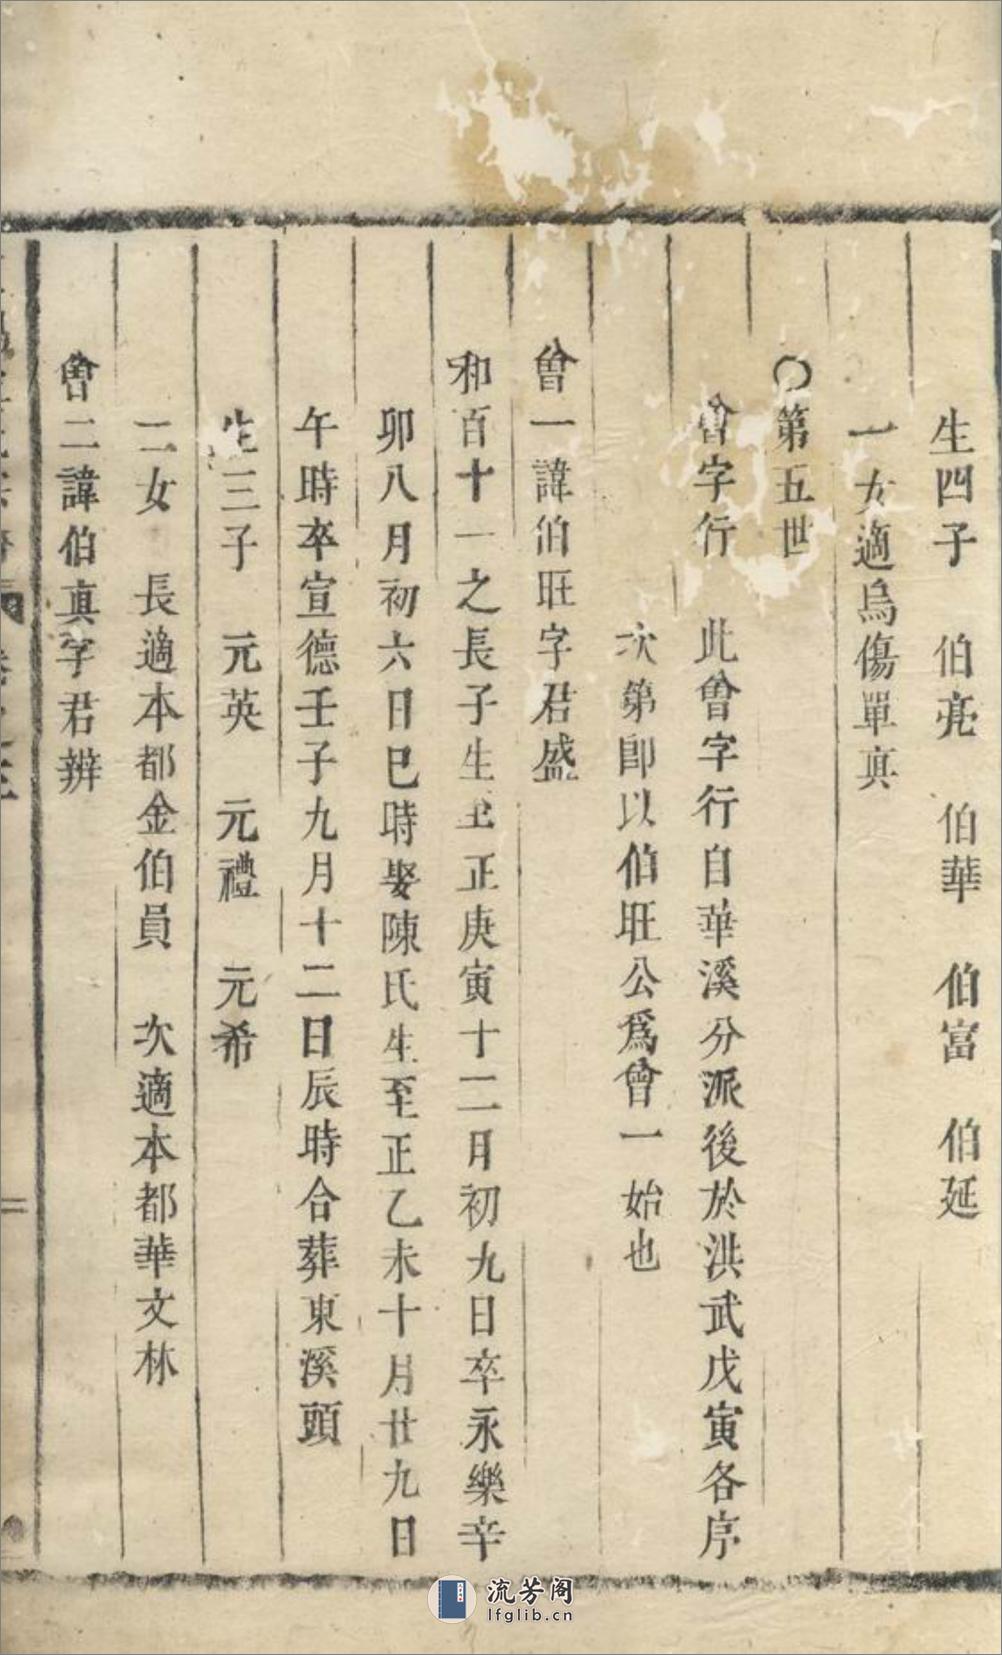 生四子　伯亮　伯華　伯富　伯延
一女適烏傷單真
〇第五世
曾字行　此曾字行自華溪分派後於洪武戊寅各序
次第即以伯旺公爲曾一始也
曾一諱伯旺字君盛
和百十一之長子生至正庚寅十二月初九日卒永樂辛
卯八月初六日巳時娶陳氏生至正乙未十月廿九日
午時卒宣德壬子九月十二日辰時合葬東溪頭
生三子　元英　元禮　元希
二女　長適本都金伯員　次適本都華文林
曾二諱伯真字君辨
流芳阁
lfglib.cn